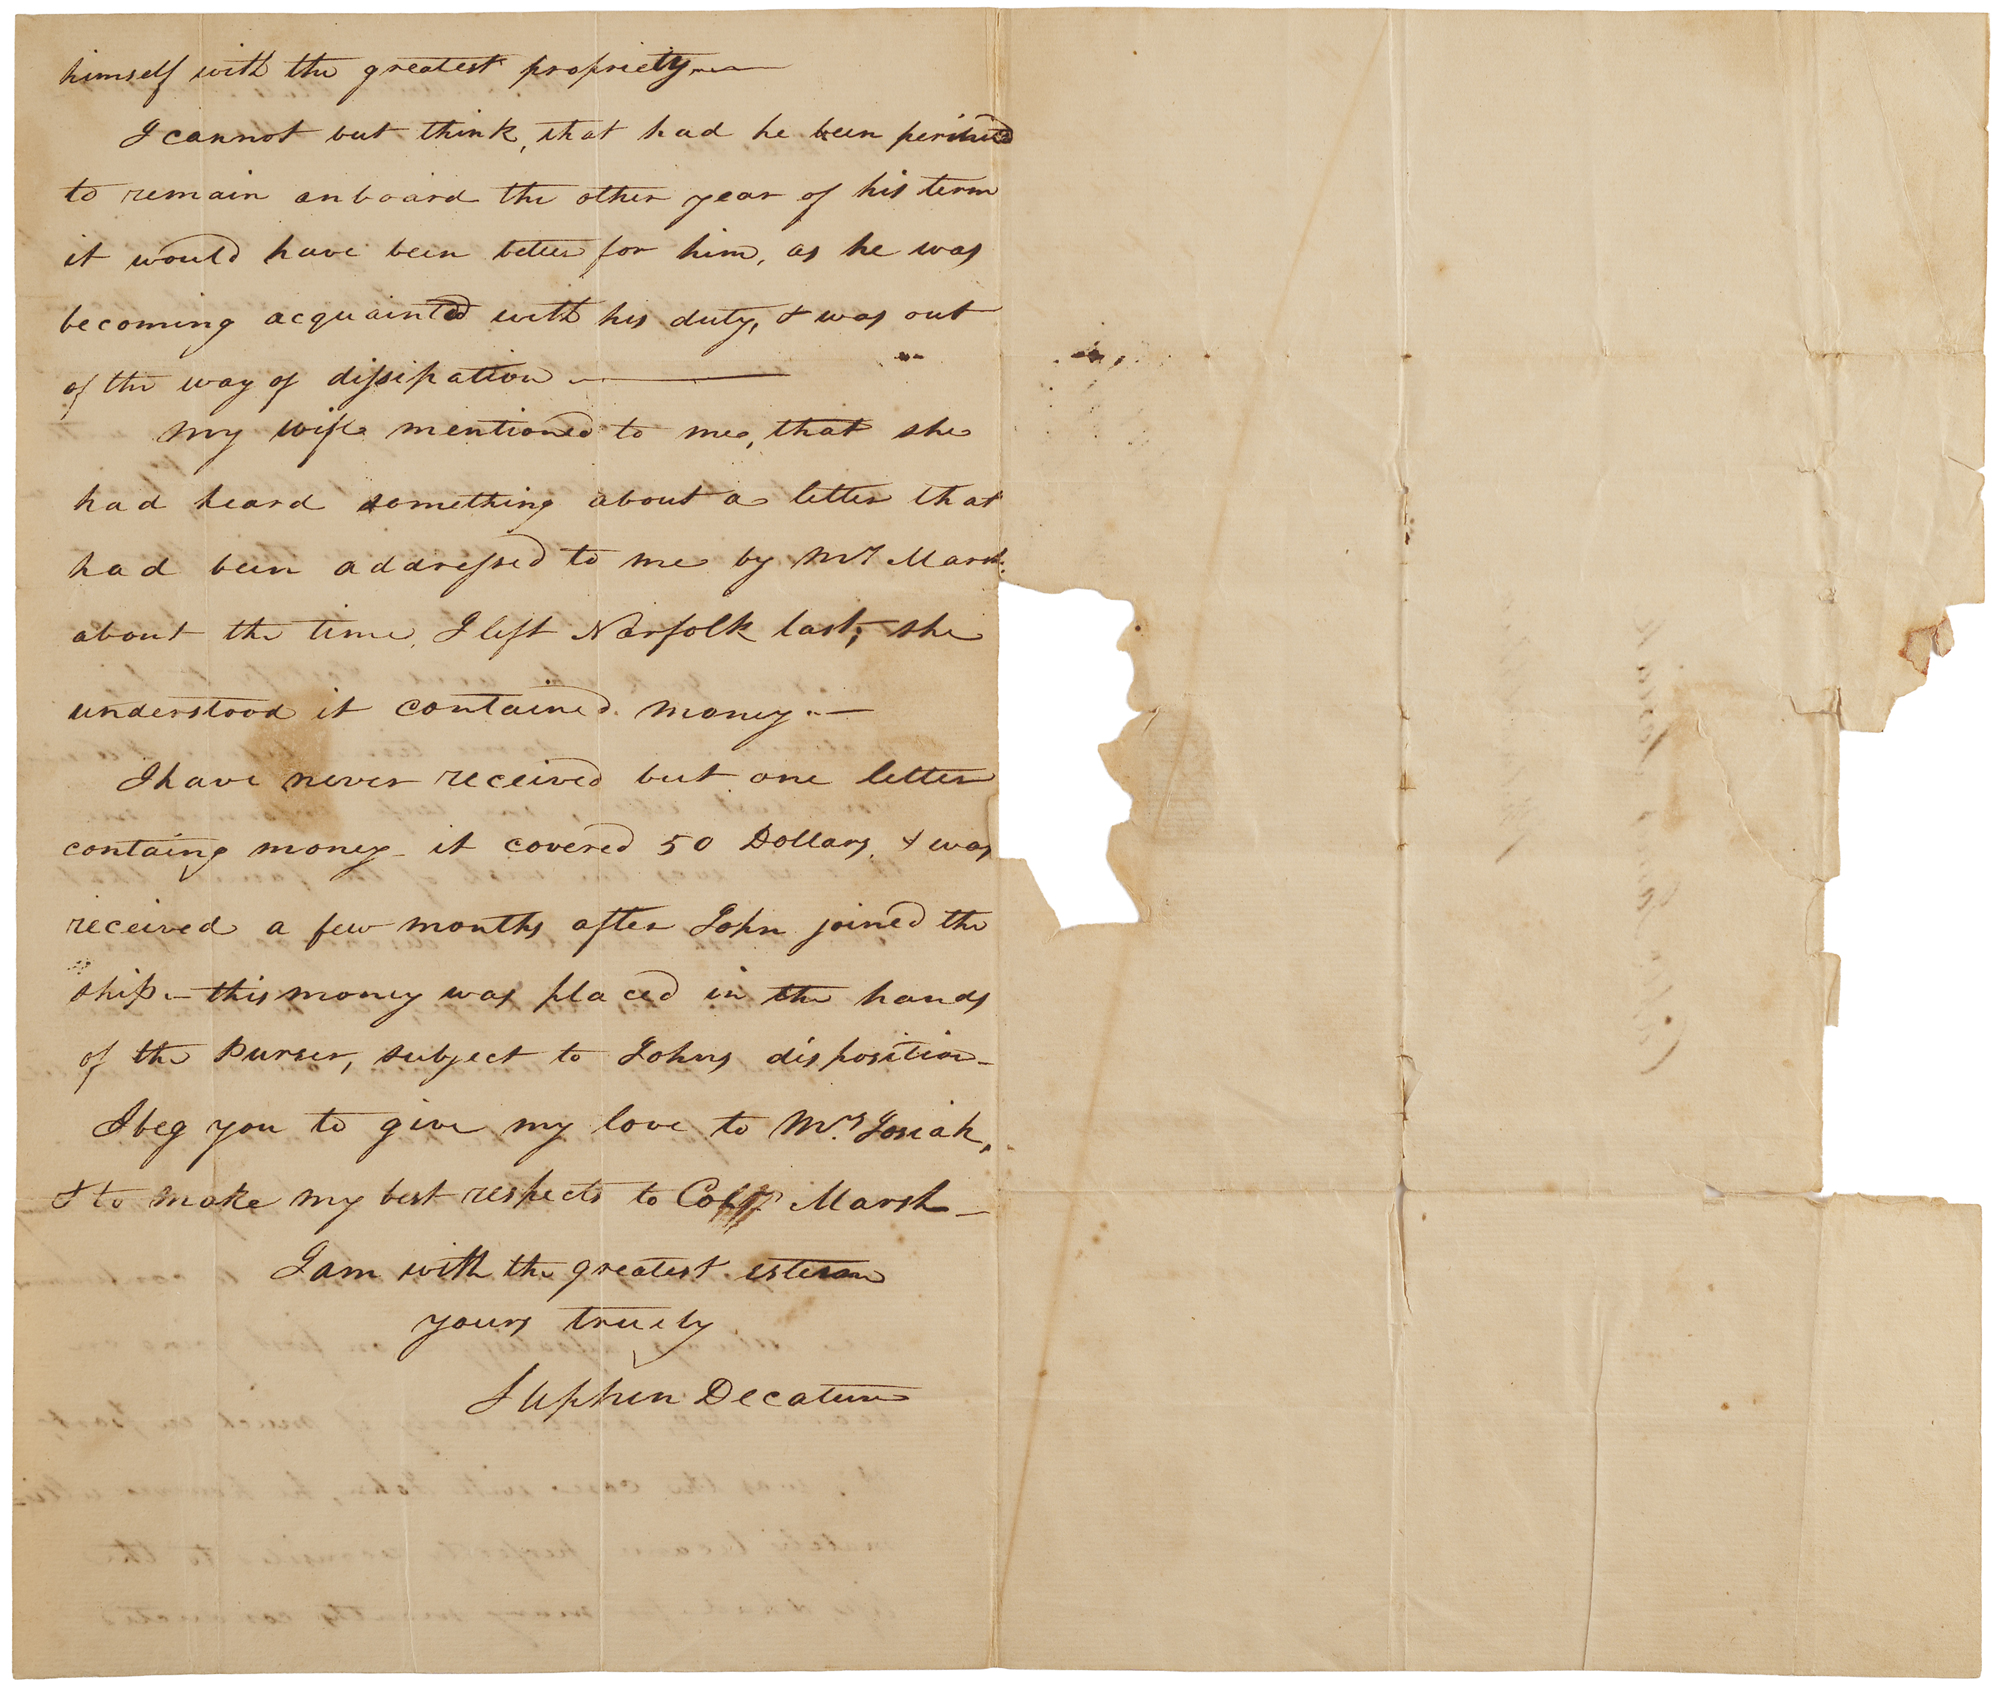 himself with the greatest propriety.—
I cannot but think, that had he been
to remain onboard the other year of his term
it would have been better for him, as he was
becoming acquainted with his duty, & was out
of the way of dissipation.—
My wife mentioned to me, that she
had heard something about a letter that
had been addressed to me by Mr Marsh
about the time, I left Norfolk last, she
understood it contained money.—
I have never received but one letter
containg money— it covered 50 Dollars, & was
received a few months after John joined the
ship.— this money was placed in the hands
of the Purser, subject to Johns disposition—
I beg you to give my love to Mrs. Josiah,
& to make my best respects to Marsh—
I am with the greatest esteem
yours truely
Stephen Decatur